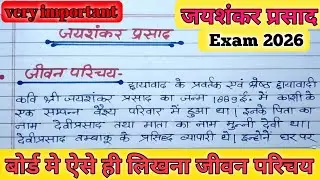 very important
जयशंकर प्रसाद
Exam 2026
जयशंकर प्रसाद
जीवन परिचय-
छायावाद के प्रवर्तक एवं श्रेष्ठ छायावादी
कवि श्री जयशंकर प्रसाद का जन्म 1889ई. में काशी के
एक सम्पन्न वैश्य परिवार में हुआ था। इनके पिता का
नाम देवीप्रसाद तथा माता का नाम मुन्नी देवी था।
देवीप्रसाद तम्बाकू के प्रसिद्ध व्यापारी थे। इन्होंने घर पर
बोर्ड मे ऐसे ही लिखना जीवन परिचय